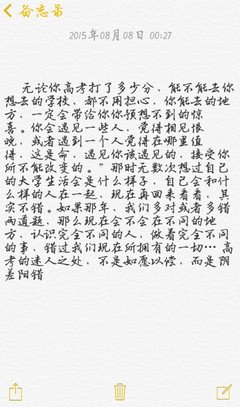 备忘录
2015年08月08日 00:27
无论你高考打了多少分，能不能去你
想去的学校，都不用担心，你能去的地
方，一定会带给你你预想不到的惊
喜。你会遇见一些人，觉得相见恨
晚，或者遇到一个人觉得在哪里值
得，这是命，遇见你该遇见的，接受你
所不能改变的。”那时无数次想过自己
的大学生活会是什么样子，自己会和什
么样的人在一起，现在再回来看看，其
实不错。如果那年，我们多对或者多错
两道题，那么现在会不会在不同的地
方，认识完全不同的人，做着完全不同
的事，错过我们现在所拥有的一切…高
考的迷人之处，不是如愿以偿，而是阴
差阳错